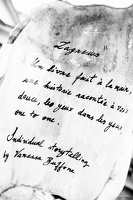 Zagreus
Un livre fait à la main,
une histoire racontée à voix
douce, les yeux dans les yeux
one to one.
Individual storytelling
by Vanessa Buffone